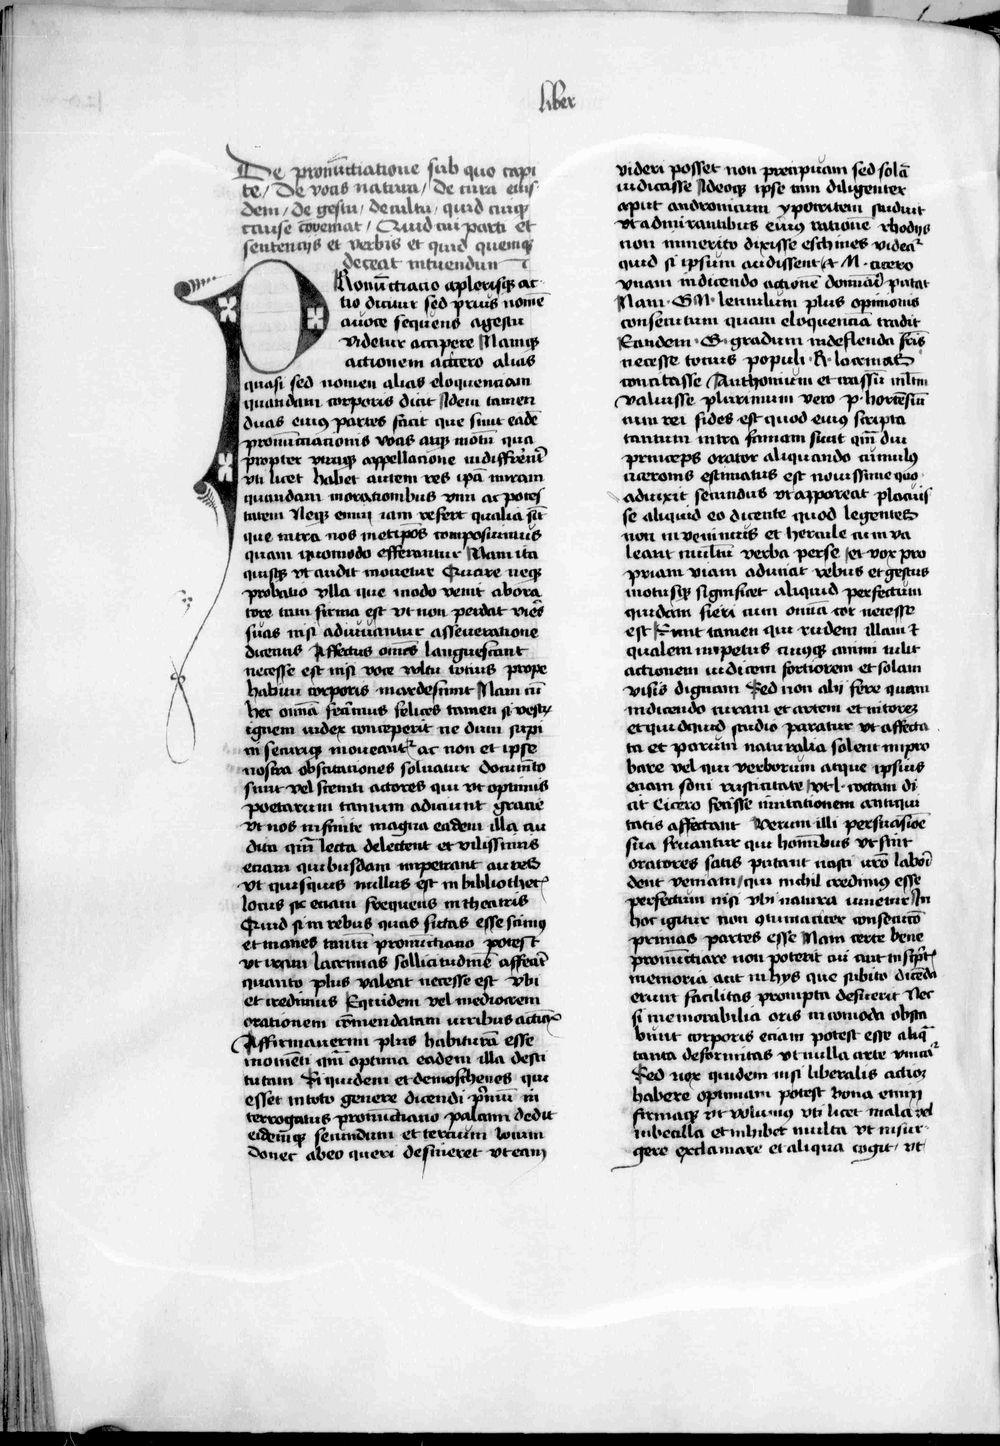 liber
De pronũctiatione sub quo capi
te / De vocis natura / de cura eius
dem / de gestu / de cultu / quid cuiq
cause cõveniat / Quid cui parti et
sentenciis et verbis et quid quemq
deceat intuendum
PRonũctiacio a plerisq; ac
tio dicitur sed prius nomẽ
a voce sequens a gestu
videtur accipere Namq;
actionem cicero alias
quasi sed nomen alias eloquenciam
quandam corporis dicit Idem tamen
duas eius partes facit que sunt eadẽ
pronũctiacionis vocis atq; motũ qua
propter utraq; appellacione indiffrẽnt
uti licet habet autem res ipã miram
quandam in oracionibus vim ac potes
tatem Neq; enim tam refert qualia sũt
que intra nos metipõs composuimus
quam quomodo efferantur Nam ita
quisq; vt audit mouetur Quare neq;
probatio vlla que modo venit ab ora
tore tam firma est vt non perdat vires
suas nisi adiuuantur asseueratione
dicentis Affectus om̃es languescant
necesse est nisi voce vultu totius prope
habitu corporis inardescunt Nam cũ
hec omnia fecimus felices tamen si vestrũ
ignem iudex conceperit ne dum supi
ni securiq; moueant᷑ ac non et ipse
nostra obscitationes soluatur Documẽto
sunt vel scenici actores qui vt optimis
poetarum tantum adiciunt gracie
vt nos infinite magna eadem illa au
dita qm̃ lecta delectent et vilissimis
eciam quibusdam impetrant aures
vt quisquis nullus est in bibliothec᷑
locus sit eciam frequens in theatris
Quid si in rebus quas fictas esse scimus
et inanes tantũ pronũctiatio potest
vt iram lacrimas sollicitudinẽ afferat
quanto plus valeat necesse est vbi
et credimus Equidem vel mediocrem
orationem cõmendatam viribus actiõis
Affirmauerim plus habiturã esse
momẽti qm̃ optima eadem illa desti
tutam Si quidem et demosthenes qui
esset in toto genere dicendi p̃muũ in
terrogatus pronũctiatio palmam dedit
eidemq; secundum et tercium locum
donec ab eo queri desineret vt eam
videri posset non precipuam sed solã
iudicasse Ideoq; ipse tam diligenter
aput andronicum ypocritem studuit
vt admirantibus eius rationẽ rhodiis
non inmerito dixisse eschines videat᷑
quid si ipsum audissent Et M· cicero
vnam in dicendo actionẽ dominari putat
Nam · GN · lentulum plus opinionis
consecutum quam eloquencia tradit
Eandem · G · gradum in deflenda fr̃is
necesse totius populi · R · lacrimas
concitasse Anthonium et crassũ mltm̃
valuisse plurimum vero · p · hortẽsiũ
cum rei fides est quod eius scripta
tantum intra famam sunt qm̃ diu
princeps orator aliquando cumulus
ciceronis estimatus est nouissime quo
adiuxit secundus vt appareat placuis
se aliquid eo dicente quod legentes
non inuenimus et hercule cum va
leant multũ verba per se et vox pro
priam viam adiciat rebus et gestus
motusq; significet aliquid perfectum
quidam fieri cum omnia cor necesse
est Sunt tamen qui rudem illam et
qualem impetus cuiusq; animi tulit
actionem iudicem fortiorem et solam
visis dignam Sed non alij fere quam
in dicendo curam et artem et nitorem
et quidquid studio paratur vt affecta
ta et parum naturalia solent impro
bare vel qui verborum atque ipsius
eciam soni rusticitate vt · l · coctam di
cit Cicero fecisse imitationem antiqui
tatis affectant Verum illi persuasiõe
sua fruantur qui hominibus vt sint
oratores satis putant nasci nr̃o labori
dent veniam / qui nichil credimus esse
perfectum nisi vbi natura iunetur In
hoc igitur non contumaciter consencio
primas partes esse Nam certe bene
pronũctiare non poterit cui aut in script᷑
memoria aut in hys que subito dicẽda
erunt facilitas prompta defuerit Nec
si memorabilia oris incomoda obsta
bunt corporis eciam potest esse aliq̃
tanta deformitas vt nulla arte vincat᷑
Sed vox quidem nisi liberalis actioẽ
habere optimam potest Bona enim
firmaq; vt volumus vti licet mala vel
imbecilla et inhibet multa vt insur-
gere exclamare et aliqua cogit / vt